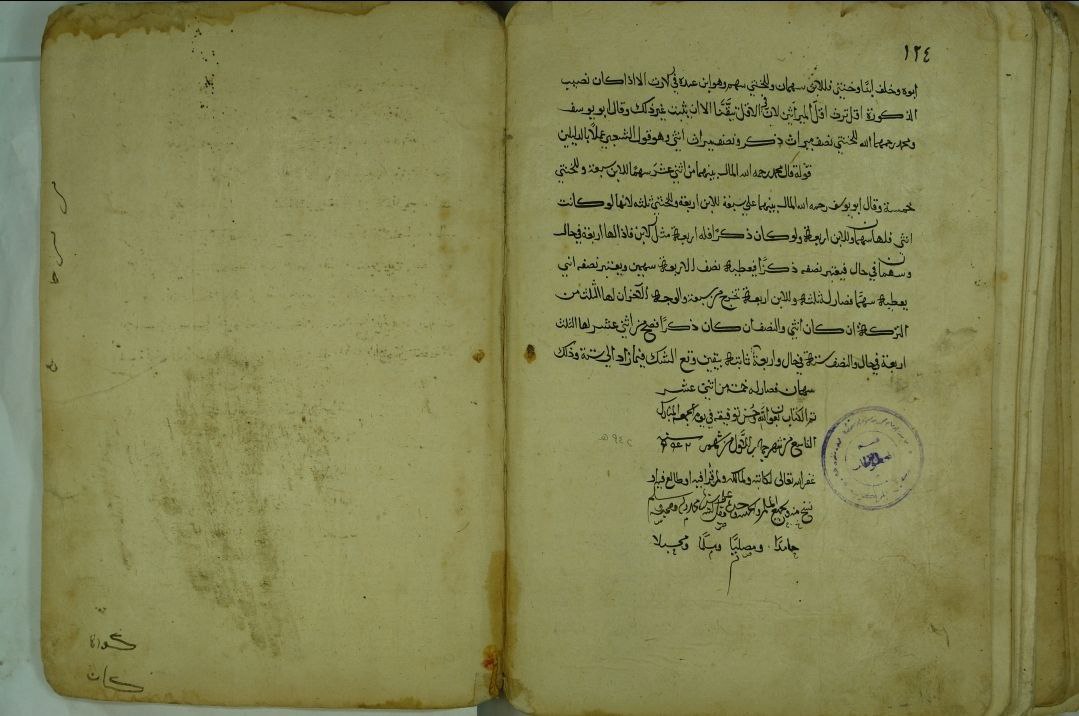 ١٢٤
ابوه وخلف ابنا وخنثى فللابن سهمان وللخنثى سهم وهو ابن عنده في الارث الا اذا كان نصيب
الذكورة اقل ترث اقل الميراثين لان في الاقل تيقنا الا ان يثبت غير ذلك وقال ابو يوسف
ومحمد رحمهما الله للخنثى نصف ميراث ذكر ونصف ميراث انثى وهو قول الشعبي عملا بالدليلين
قوله قال محمد رحمه الله المال بينهما من اثنى عشر سهما للابن سبعة وللخنثى
خمسة وقال ابو يوسف رحمه الله المال بينهما على سبعة للابن اربعة وللخنثى ثلثة لانها لو كانت
انثى فلها سهمان وللابن اربعة ولو كان ذكرا فله اربعة مثل الابن فاذا لها اربعة في حال
وسهمان في حال فيعتبر نصفه ذكرا فيعطيه نصف الاربعة سهمين ويعتبر نصفه انثى
يعطيه سهما فصار له ثلثة وللابن اربعة تخرج من سبعة والوجه الآخر ان لها الثلث من
التركة ان كان انثى والنصف ان كان ذكرا فصح من اثنى عشر لها الثلث
اربعة في حال والنصف ستة في حال واربعة ثابتة بيقين وقع الشك فيما زاد الى ستة وذلك
سهمان فصار له خمسة من اثنى عشر
تم الكتاب بعون الله وحسن توفيقه في يوم الجمعة المبارك
التاسع من شهر جمادى الاول من شهور سنة ٩٤٢
٩٤٢ هـ
غفر الله تعالى لكاتبه ولمالكه ولمن قرأ فيه او طالع
حامدا ومصليا ومسلما ومحسبلا